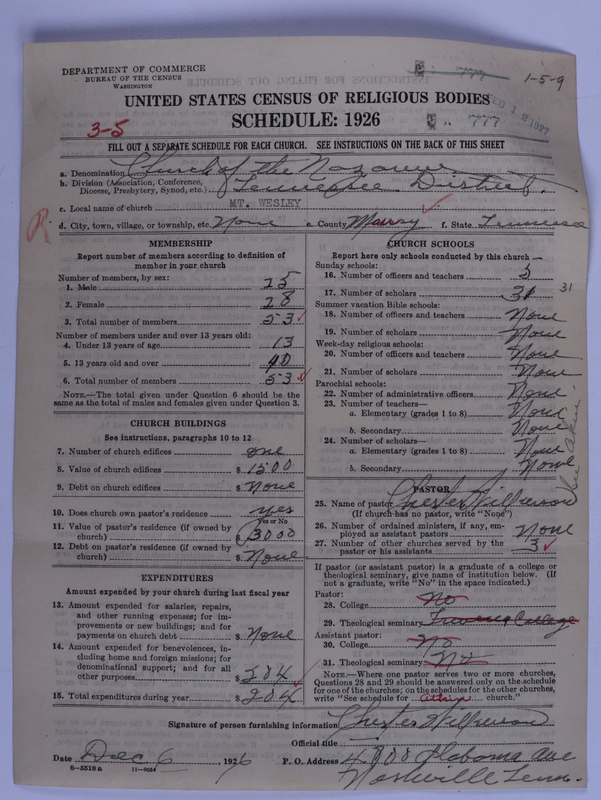 DEPARTMENT OF COMMERCE
BUREAU OF THE CENSUS
WASHINGTON
777
1-5-9
UNITED STATES CENSUS OF RELIGIOUS BODIES
FEB 12 1927
SCHEDULE: 1926
3-5
777
FILL OUT A SEPARATE SCHEDULE FOR EACH CHURCH. SEE INSTRUCTIONS ON THE BACK OF THIS SHEET
a. Denomination Church of the Nazarene
b. Division (Association, Conference, Diocese, Presbytery, Synod, etc.) Tennessee District
c. Local name of church MT. WESLEY
d. City, town, village, or township, etc. None e. County Maury f. State Tennessee
MEMBERSHIP
Report number of members according to definition of
member in your church
Number of members, by sex:
1. Male 25
2. Female 28
3. Total number of members 53
Number of members under and over 13 years old:
4. Under 13 years of age 13
5. 13 years old and over 40
6. Total number of members 53
NOTE.—The total given under Question 6 should be
same as the total of males and females given under Question 3.
CHURCH BUILDINGS
See instructions, paragraphs 10 to 12
7. Number of church edifices one
8. Value of church edifices $ 1500
9. Debt on church edifices $ None
10. Does church own pastor's residence? yes
Yes or No
11. Value of pastor's residence (if owned by
church) $ 3000
12. Debt on pastor's residence (if owned by
church) $ None
EXPENDITURES
Amount expended by your church during last fiscal year
13. Amount expended for salaries, repairs,
and other running expenses; for im-
provements or new buildings; and for
payments on church debt $ None
14. Amount expended for benevolences, in-
cluding home and foreign missions; for
denominational support; and for all
other purposes $ 204
15. Total expenditures during year $ 204
CHURCH SCHOOLS
Report here only schools conducted by this church—
Sunday schools:
16. Number of officers and teachers 5
17. Number of scholars 31 31
Summer vacation Bible schools:
18. Number of officers and teachers None
19. Number of scholars None
Week-day religious schools:
20. Number of officers and teachers None
21. Number of scholars None
Parochial schools:
22. Number of administrative officers None
23. Number of teachers—
a. Elementary (grades 1 to 8) None
b. Secondary None
24. Number of scholars—
a. Elementary (grades 1 to 8) None
b. Secondary None
PASTOR
25. Name of pastor Chester Wilkerson
(If church has no pastor, write "None")
26. Number of ordained ministers, if any, em-
ployed as assistant pastors None
27. Number of other churches served by the
pastor or his assistants 3
If pastor (or assistant pastor) is a graduate of a college or
theological seminary, give name of institution below. (If
not a graduate, write "No" in the space indicated.)
Pastor:
28. College No
29. Theological seminary College
Assistant pastor:
30. College No
31. Theological seminary No
NOTE.—Where one pastor serves two or more churches,
Questions 28 and 29 should be answered only on the schedule
for one of the churches; on the schedules for the other churches,
write "See schedule for church."
Signature of person furnishing information Chester Wilkerson
Official title
Date Dec 6, 1926 P. O. Address 4700 Alabama Ave
8-5518a 11-9054 Nashville Tenn.